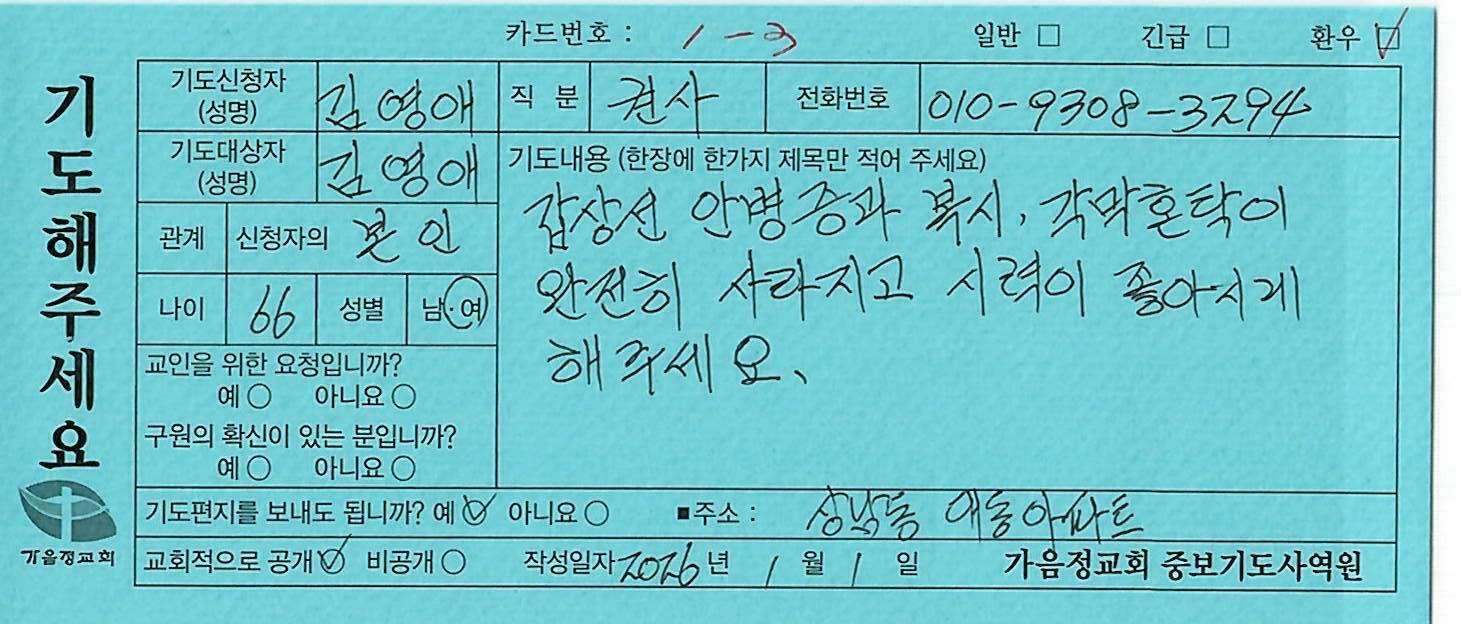 카드번호 : 1-3 일반 □ 긴급 □ 환우 ☑
기도해주세요
기도신청자 (성명) 김영애 직 분 권사 전화번호 010-9308-3294
기도대상자 (성명) 김영애
기도내용 (한장에 한가지 제목만 적어 주세요)
갑상선 안병증과 복시, 각막혼탁이
완전히 사라지고 시력이 좋아지게
해주세요.
관계 신청자의 본인
나이 66 성별 남·여
교인을 위한 요청입니까?
예 ○ 아니요 ○
구원의 확신이 있는 분입니까?
예 ○ 아니요 ○
기도편지를 보내도 됩니까? 예 ☑ 아니요 ○ ■주소 : 상남동 대동아파트
교회적으로 공개 ☑ 비공개 ○ 작성일자 2026년 1월 1일 가음정교회 중보기도사역원
가음정교회